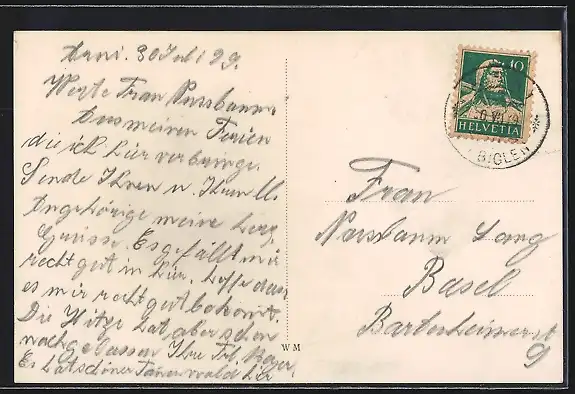 Arni. 30 Juli 29.
Werte Frau Nussbaum
Aus meinen Ferien
die ich hier verbringe.
Sende Ihnen u. Ihren ll.
Angehörige meine herz.
Grüsse. Es gefällt mir
recht gut in hier. hoffe dass
es mir recht gut bekomt.
Die Hitze hat aber schon
nachgelassen Ihre Frl. Meyer
Es hat schöner Tannenwald hier
10
HELVETIA
BIGLEN
Frau
Nussbaum Lang
Basel
Bartenheimerst
9
WM